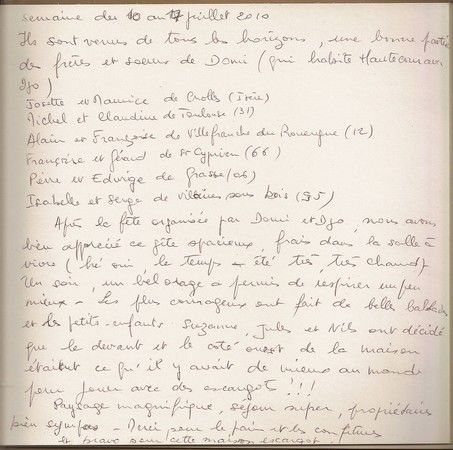 semaine du 10 au 17 juillet 2010
Ils sont venus de tous les horizons, une bonne partie
des frères et soeurs de Domi (qui habite Hautecour avec
Djo)
Josette et Maurice de Crolles (Isère)
Michel et Claudine de Toulouse (31)
Alain et Françoise de Villefranche du Rouergue (12)
Françoise et Gérard de St Cyprien (66)
Pierre et Edwige de Grasse (06)
Isabelle et Serge de villaines sous bois (95)
Après la fête organisée par Domi et Djo, nous avons
bien apprécié ce gîte spacieux, frais dans la salle à
vivre (hé oui, le temps - été très, très chaud)
Un soir, un bel orage a permis de respirer un peu
mieux - Les plus courageux ont fait de belles balades
et les petits-enfants Suzanne, Jules et Nils ont décidé
que le devant et le côté ouest de la maison
étaient ce qu'il y avait de mieux au monde
pour jouer avec des escargots !!!
Paysage magnifique, séjour super, propriétaires
bien sympas - Merci pour le pain et les confitures
et bravo pour cette maison escargot.